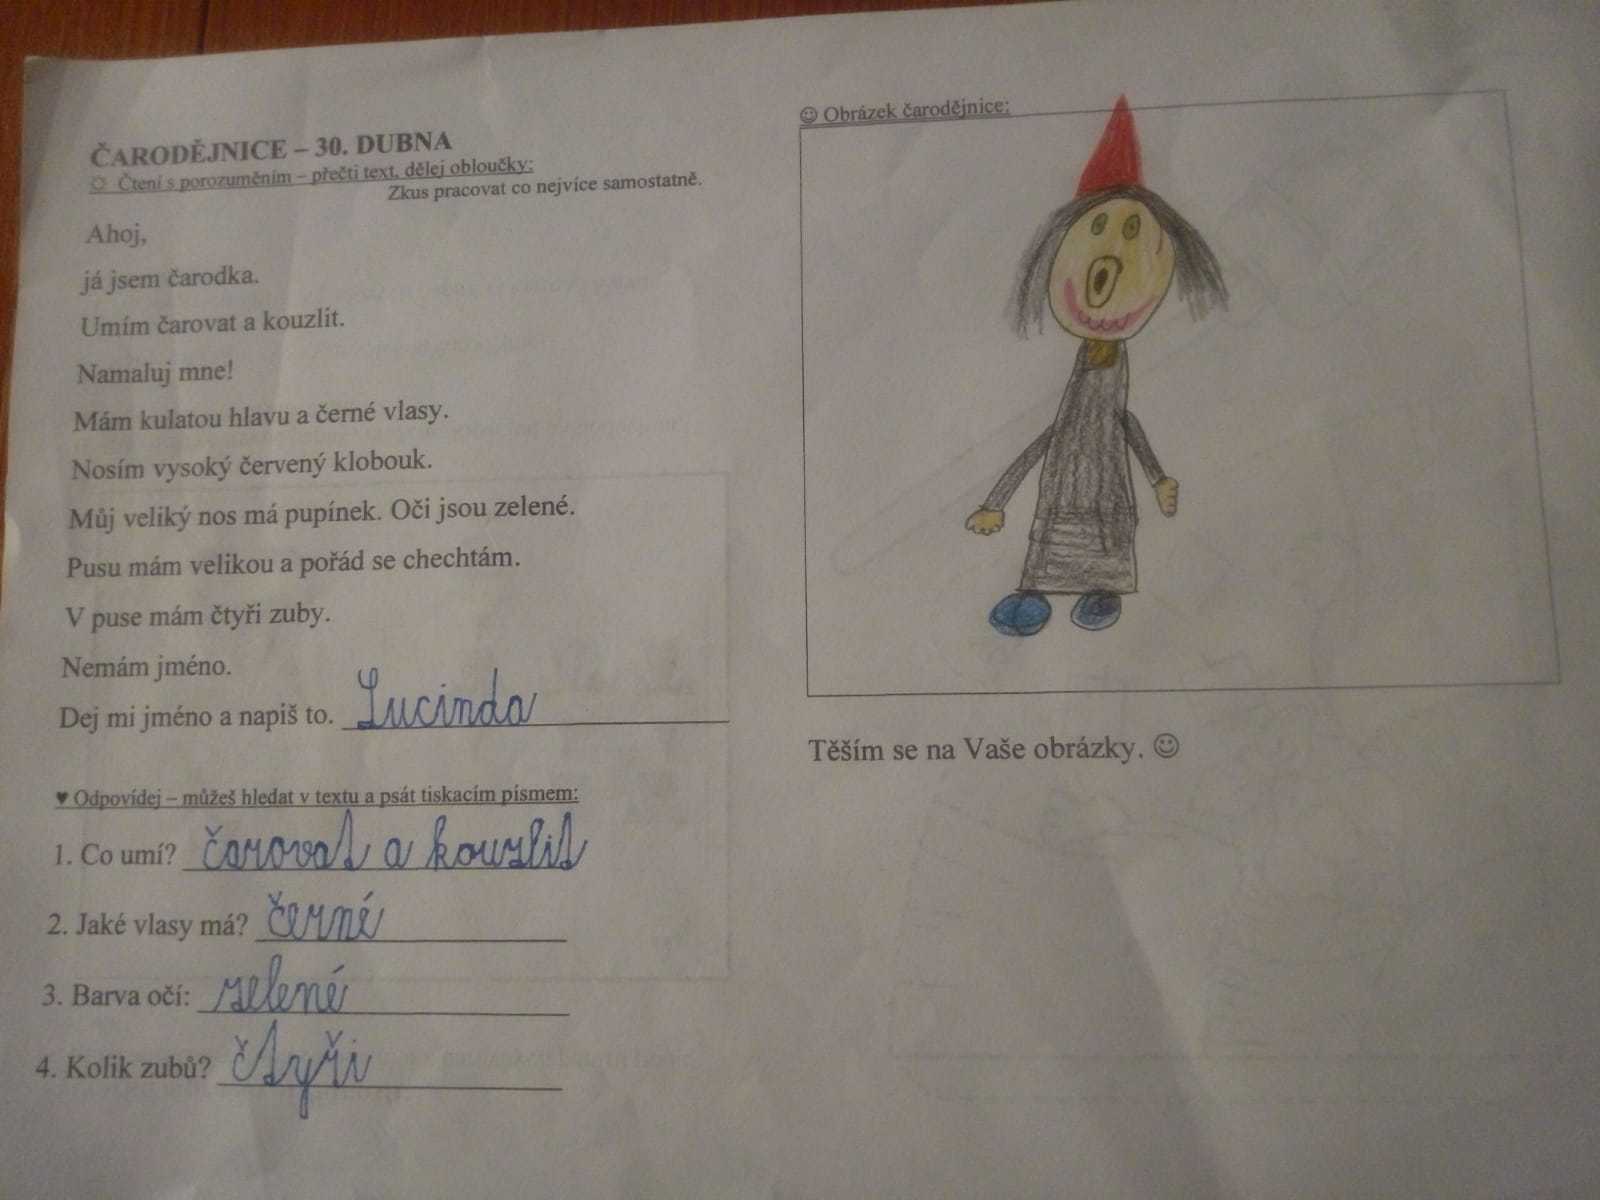 ČARODĚJNICE – 30. DUBNA
☼ Čtení s porozuměním – přečti text, dělej obloučky:
Zkus pracovat co nejvíce samostatně.
Ahoj,
já jsem čarodka.
Umím čarovat a kouzlit.
Namaluj mne!
Mám kulatou hlavu a černé vlasy.
Nosím vysoký červený klobouk.
Můj veliký nos má pupínek. Oči jsou zelené.
Pusu mám velikou a pořád se chechtám.
V puse mám čtyři zuby.
Nemám jméno.
Dej mi jméno a napiš to. Lucinda
♥ Odpovídej – můžeš hledat v textu a psát tiskacím písmem:
1. Co umí? čarovat a kouzlit
2. Jaké vlasy má? černé
3. Barva očí: zelené
4. Kolik zubů? čtyři
☺ Obrázek čarodějnice:
Těším se na Vaše obrázky. ☺